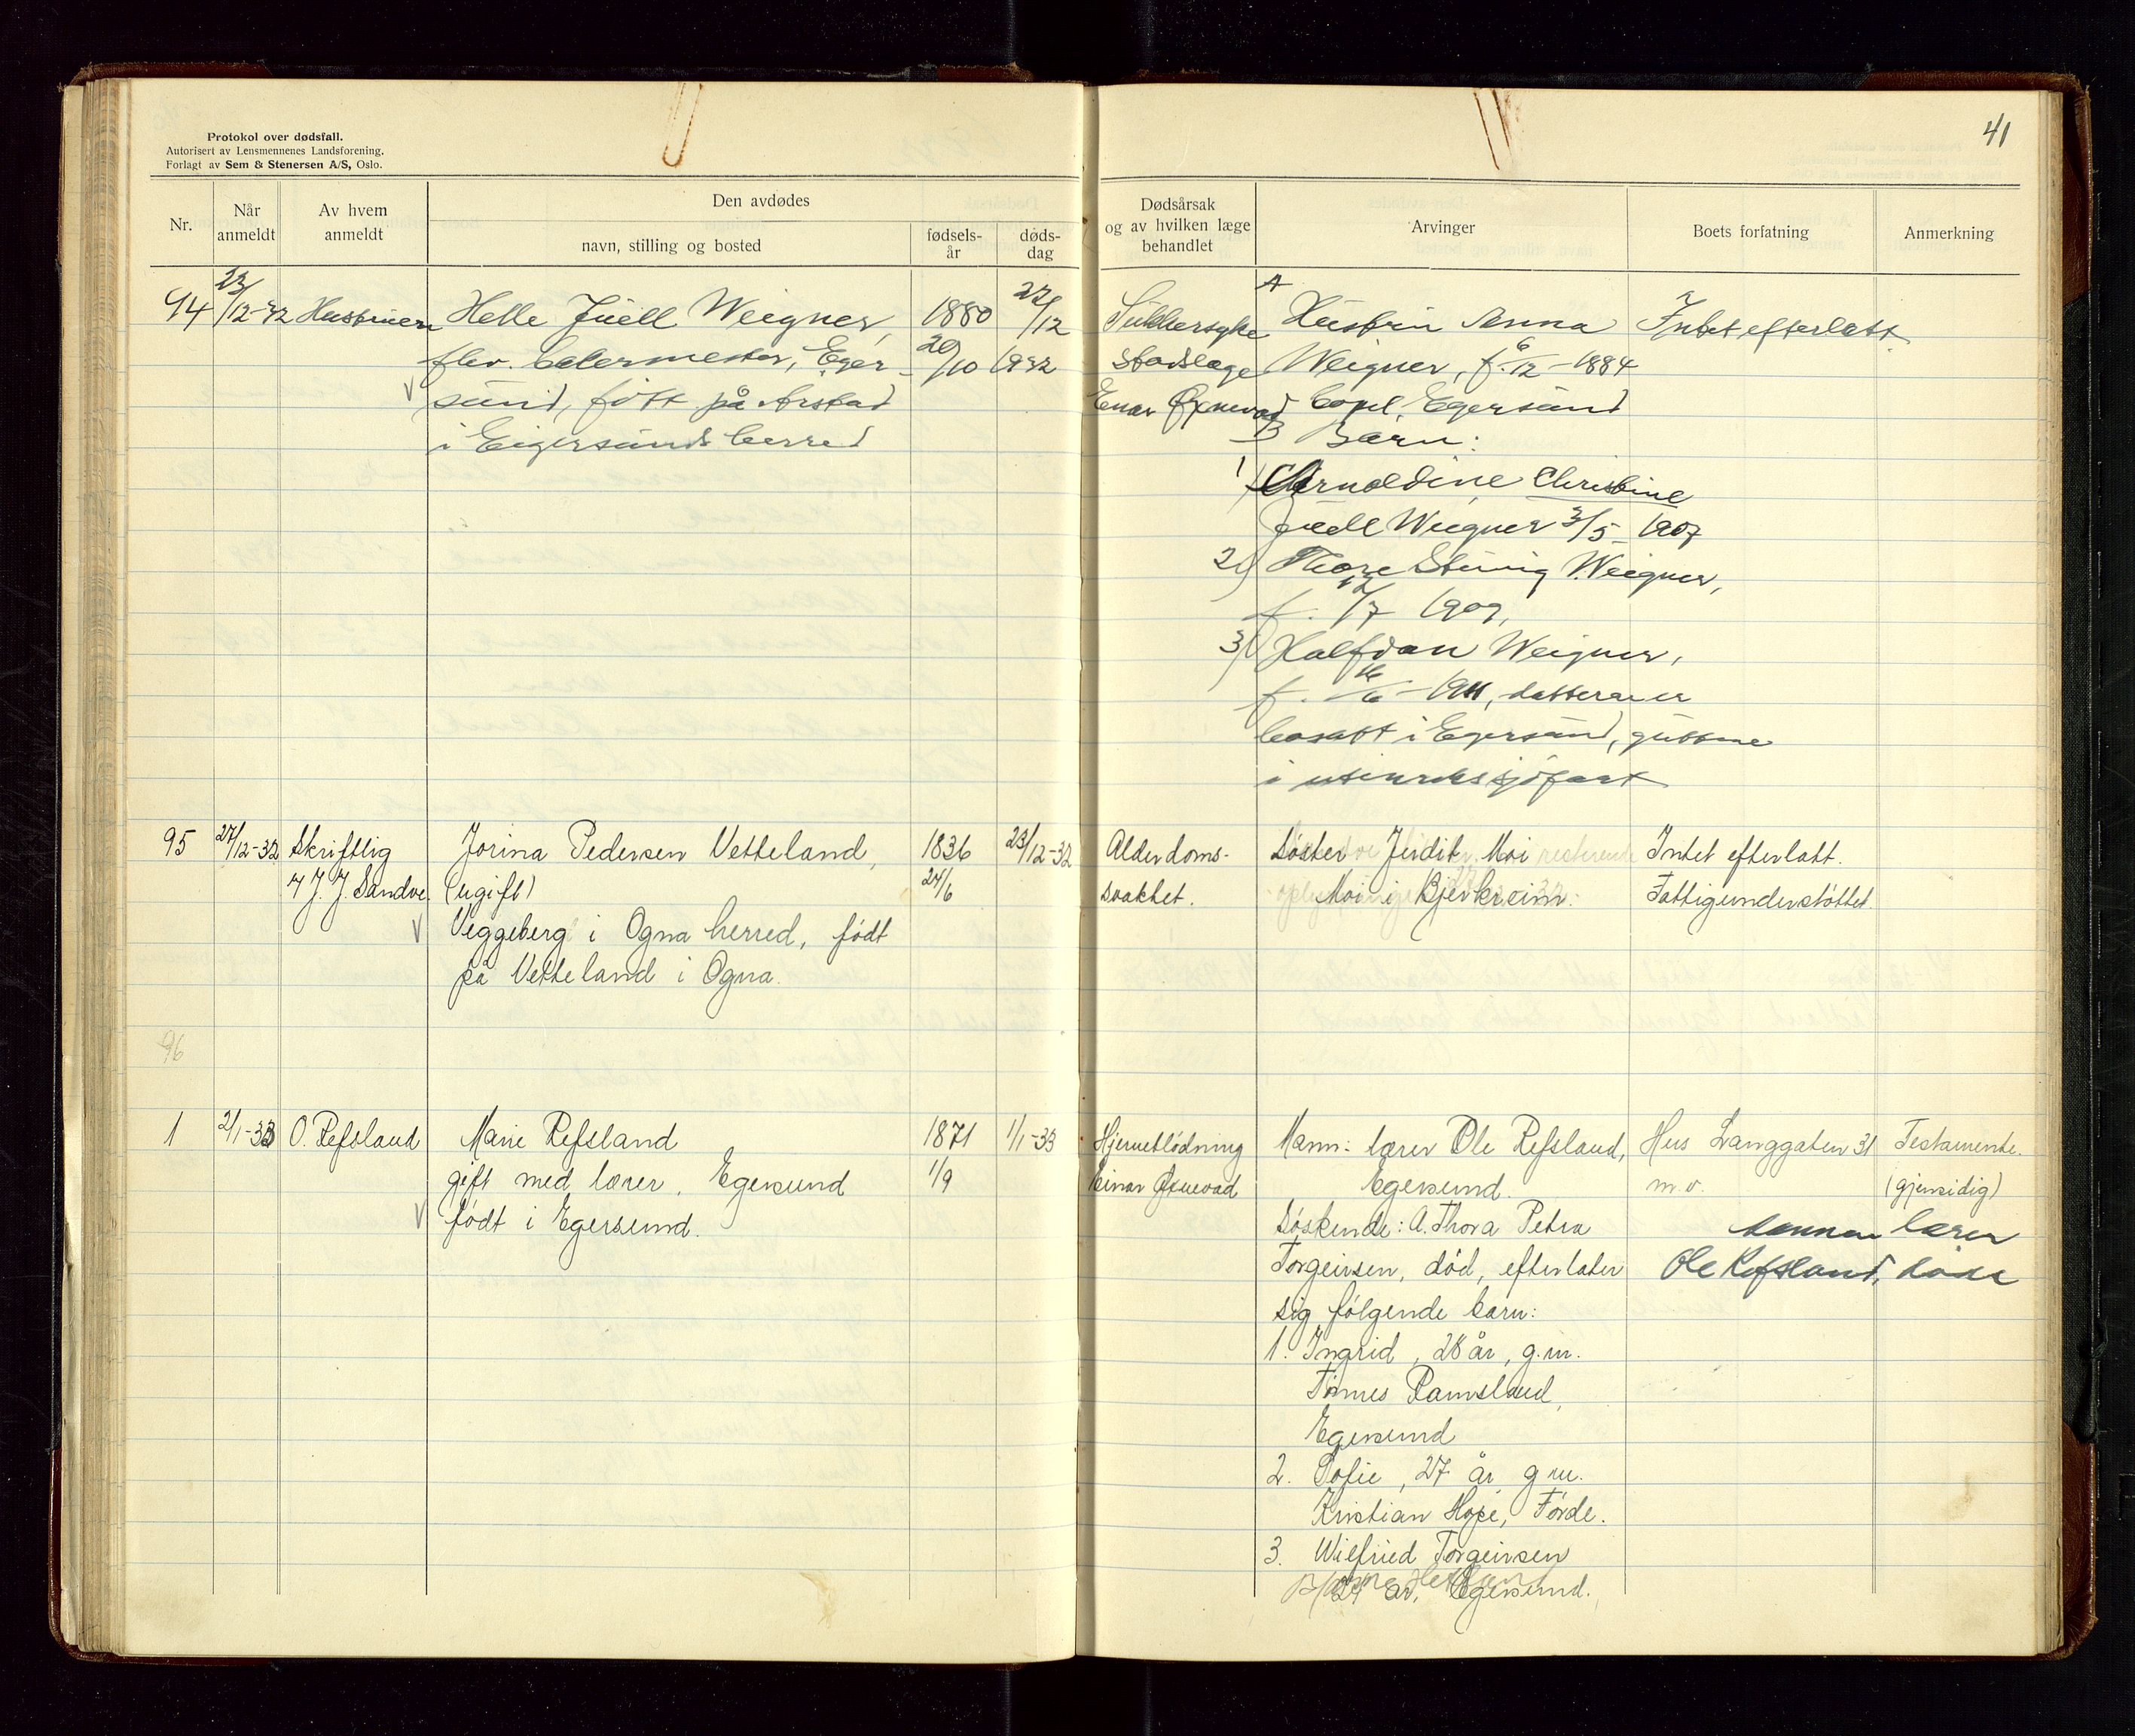 Protokol over dødsfall.
Autorisert av Lensmennenes Landsforening.
Forlagt av Sem & Stenersen A/S, Oslo.
41
Nr.
Når anmeldt
Av hvem anmeldt
Den avdødes
navn, stilling og bosted
fødsels-
år
døds-
dag
Dødsårsak
og av hvilken læge
behandlet
Arvinger
Boets forfatning
Anmerkning
94
23/12-32 Hustruen
Helle Juell Weigner,
flev. malermester, Eger-
sund, født på Årstad
i Eigersund herred
1880
20/10
22/12
1932
Sukkersyke
stadslæge
Einar Øxnevad
A
Hustru Anna
Weigner, f. 6/12-1884
bopel, Egersund
B Barn:
1) Arnoldine Christine
Juell Weigner 3/5-1907
2) Thore Weigner,
f. 12/7 1909,
3) Halfdan Weigner,
f. 16/6-1911, datteren er
bosatt i Egersund, guttene
i utenriks sjøfart
Intet efterlatt
95
27/12-32
Skriftlig
v/ J. J. Sandve
Jorina Pedersen Vetteland,
(ugift)
Veggeberg i Ogna herred, født
på Vetteland i Ogna.
1836
24/6
23/12-32
Alderdoms-
svakhet.
Søster Jerdit Moi
Moi i Bjerkreim.
Intet efterlatt.
Fattigunderstøttet.
96
1
2/1-33
O. Refsland
Marie Refsland
gift med lærer, Egersund
født i Egersund.
1871
1/9
1/1-33
Hjerneblødning
Einar Øxnevad
Mann: lærer Ole Refsland,
Egersund.
Søskende: A. Thora Petra
Torgeirsen, død, efterlater
sig følgende barn:
1. Ingrid, 28 år, g.m.
Tønnes Ramsland,
Egersund
2. Sofie, 27 år g m.
Kristian Hope, Førde.
3. Wilfried Torgeirsen
24 år, Egersund.
Hus Langgaten 31
m.v.
Testamente.
(gjensidig)
mannen lærer
Ole Refsland, døde